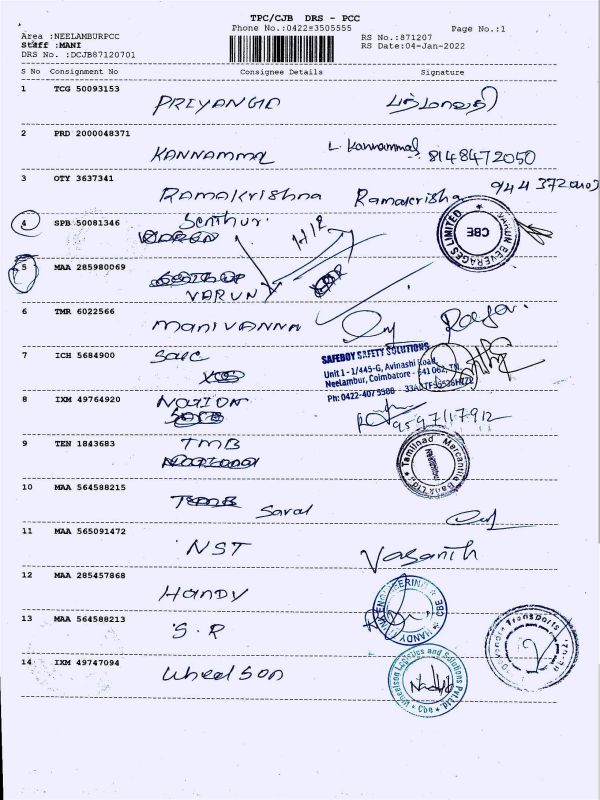 TPC/CJB DRS - PCC
Phone No.:0422≠3505555
Page No.:1
Area :NEELAMBURPCC
Staff :MANI
DRS No. :DCJB87120701
RS No.:871207
RS Date:04-Jan-2022
S No Consignment No Consignee Details Signature
1 TCG 50093153 PRIYANGA பத்மாவதி
2 PRD 2000048371 KANNAMMAL L. Kannammal 8148472050
3 OTY 3637341 Ramakrishna Ramakrisha
4 SPB 50081346 Senthur.
VARUN BEVERAGES LIMITED CBE
5 MAA 285980069 VARUN
6 TMR 6022566 MANIVANNA
7 ICH 5684900
SAFEBOY SAFETY SOLUTIONS
Unit 1 - 1/445-G, Avinashi Road,
Neelambur, Coimbatore - 641 062, TN.
Ph: 0422-407 5588
8 IXM 49764920 NOTION
9597117912
9 TEN 1843683 TMB
Tamilnad Mercantile Bank Ltd
10 MAA 564588215 Saral
11 MAA 565091472 NST Vasanth
12 MAA 285457868 HANDY
HANDY ENGINEERING CBE
13 MAA 564588213 S.R
Transports
14 IXM 49747094 Wheel Son
Wheelson Logistics and Solutions Pvt.Ltd Cbe